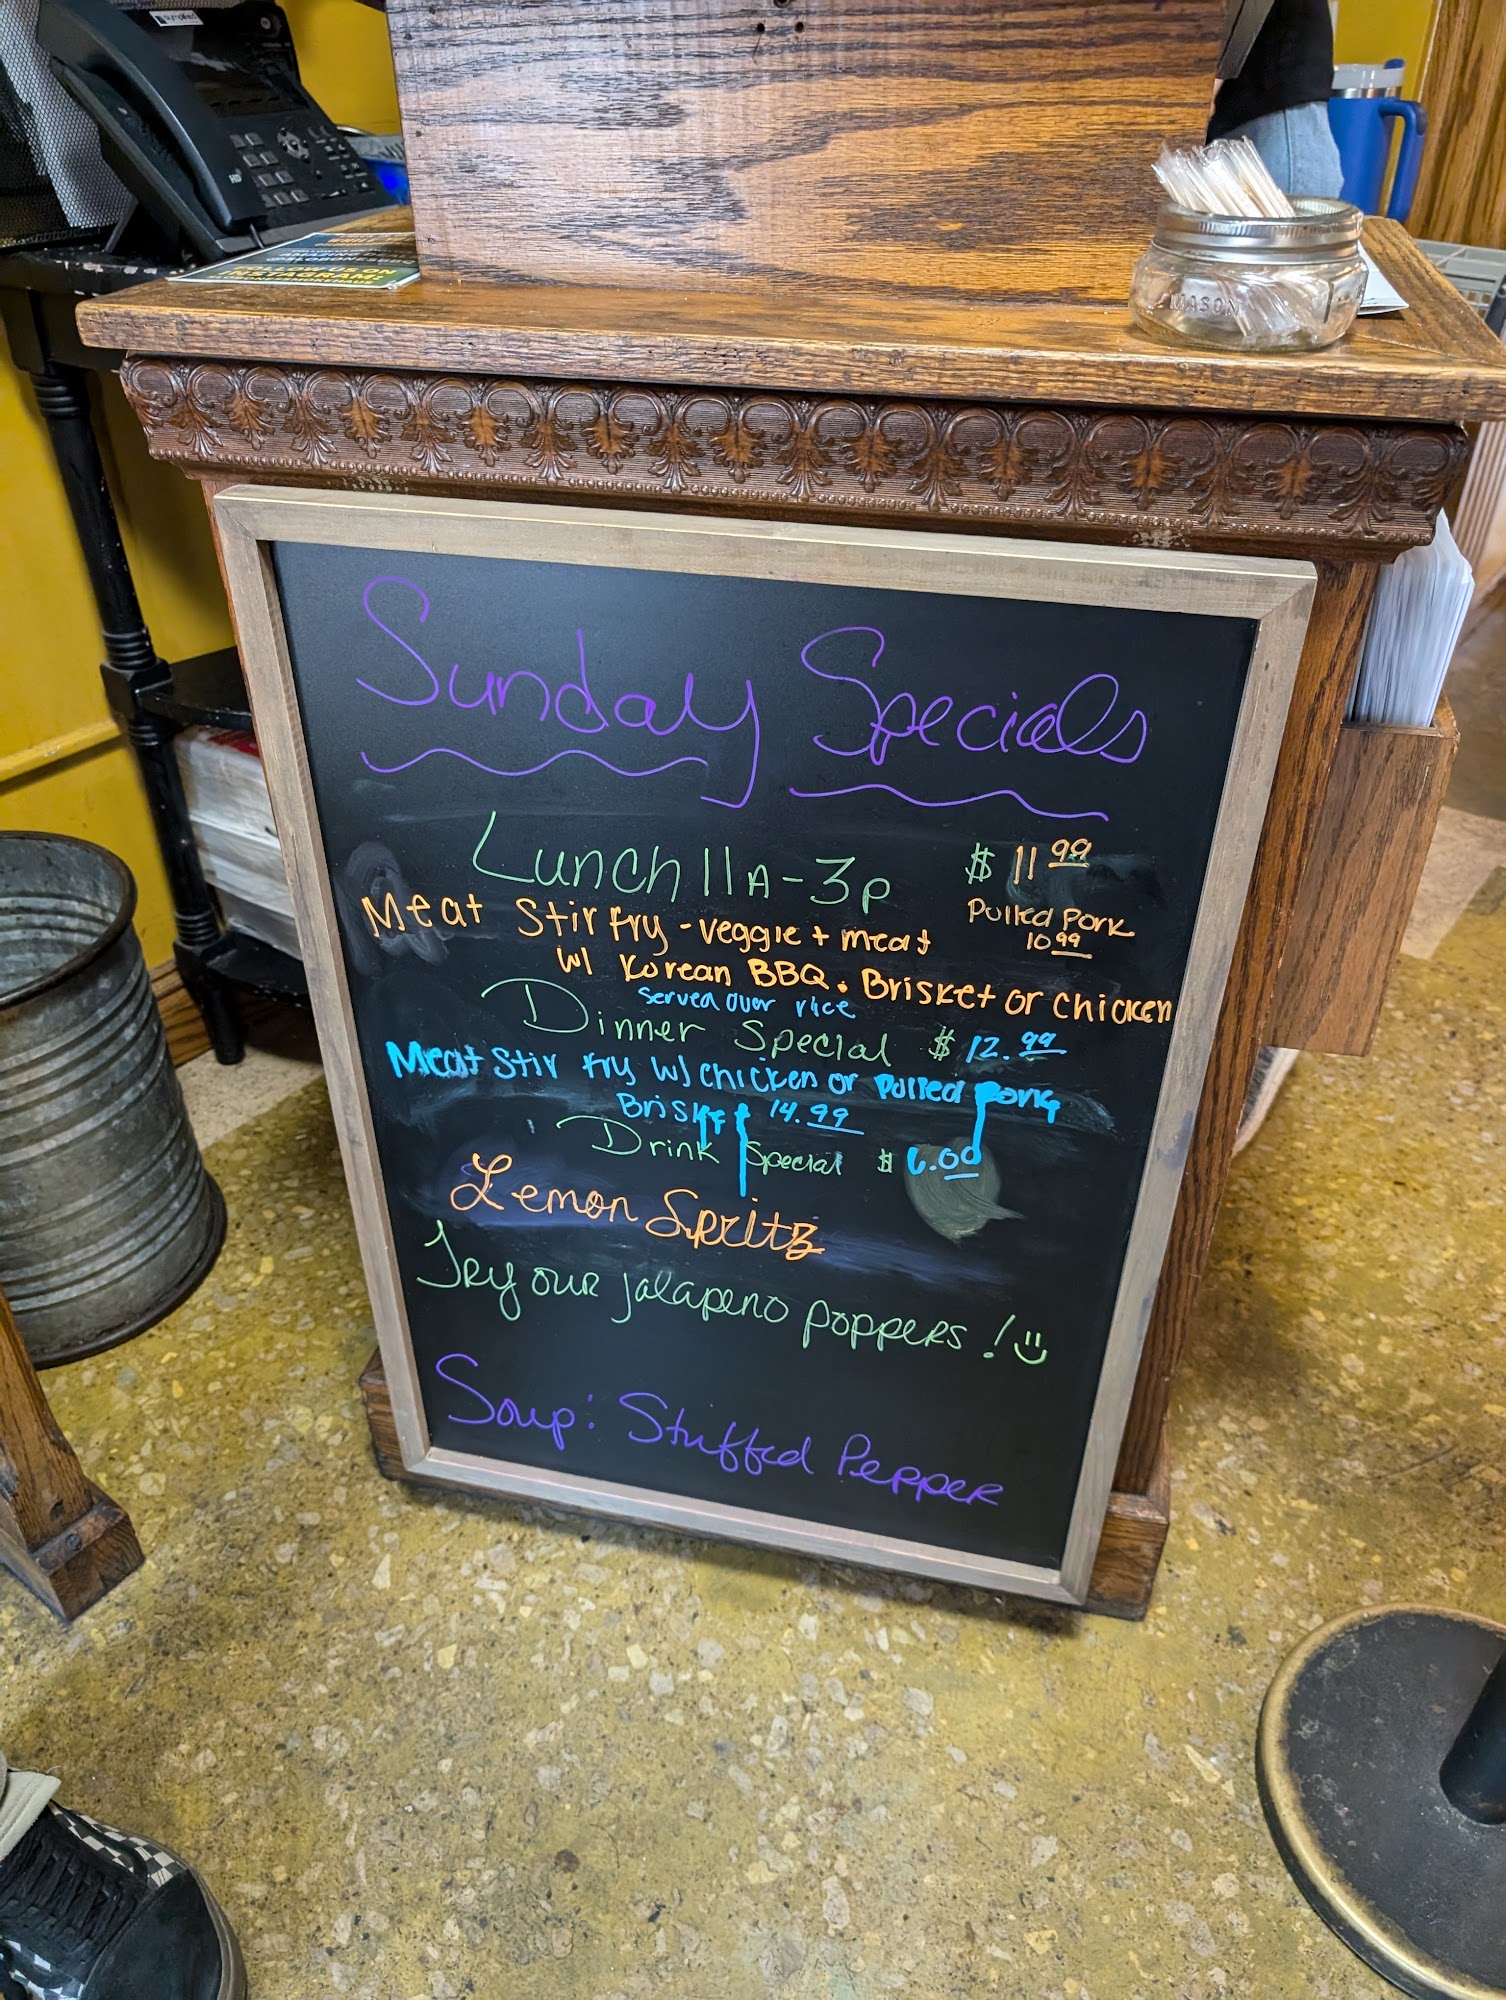 Sunday Specials
Lunch 11A-3p $11.99
Pulled Pork
10.99
Meat Stir fry - veggie + meat
w/ Korean BBQ. Brisket or chicken
served over rice
Dinner Special $12.99
Meat Stir fry w/ chicken or Pulled Pork
Brisket 14.99
Drink Special $6.00
Lemon Spritz
Try our jalapeno poppers!
Soup: Stuffed Pepper
MASON
INSTAGRAM: